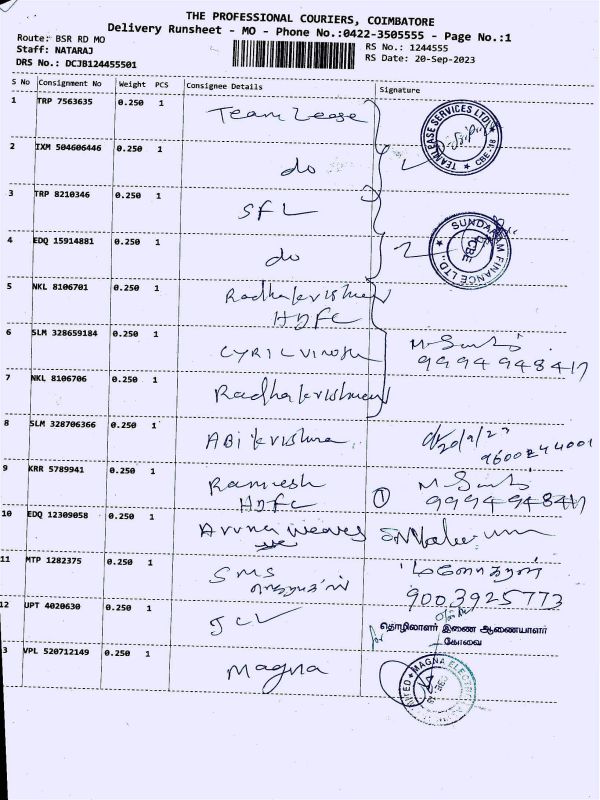 THE PROFESSIONAL COURIERS, COIMBATORE
Delivery Runsheet - MO - Phone No.:0422-3505555 - Page No.:1
Route: BSR RD MO
Staff: NATARAJ
DRS No.: DCJB124455501
RS No.: 1244555
RS Date: 20-Sep-2023
S No Consignment No Weight PCS Consignee Details Signature
1 TRP 7563635 0.250 1 Team Lease
TEAMLEASE SERVICES LTD. CBE
2 IXM 504606446 0.250 1 do
3 TRP 8210346 0.250 1 SFL
SUNDARAM FINANCE LTD., CBE
4 EDQ 15914881 0.250 1 do
5 NKL 8106701 0.250 1 Radhakrishnen
HDFC
6 SLM 328659184 0.250 1 CYRIL VINOSH
9994948417
7 NKL 8106706 0.250 1 Radhakrishnen
8 SLM 328706366 0.250 1 ABikrishna
20/9/23
9600244001
9 KRR 5789941 0.250 1 Ramesh
HDFC 1 9994948417
10 EDQ 12309058 0.250 1 Aruna weaves
11 MTP 1282375 0.250 1 SMS
மனோகரன்
9003925773
12 UPT 4020630 0.250 1 JCL
for தொழிலாளர் இணை ஆணையாளர்
கோவை
3 VPL 520712149 0.250 1 Magna
MAGNA ELECTR